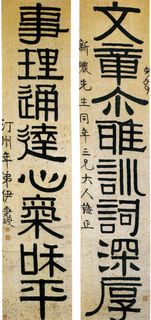 文章尒雅訓詞深厚
先生同年三兄大人
正
事理通達心氣和平
汀州年弟伊秉綬